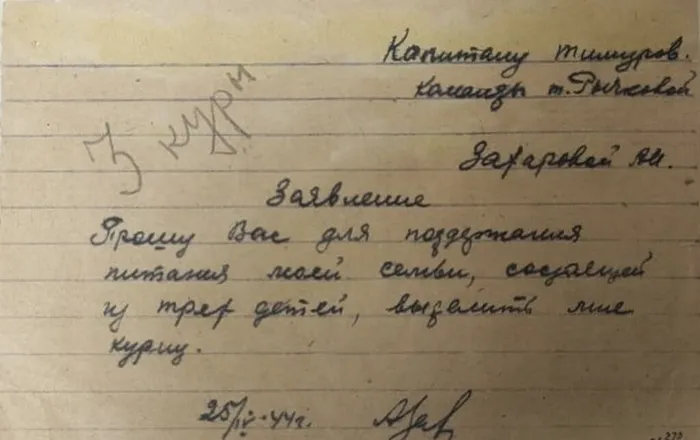 Капитану тимуров.
команды т. Рычковой
3 куры
Захаровой А.И.
Заявление
Прошу Вас для поддержания
питания моей семьи, состоящей
из трех детей, выделить мне
курицу.
25/IV-44г.
АЗах
272